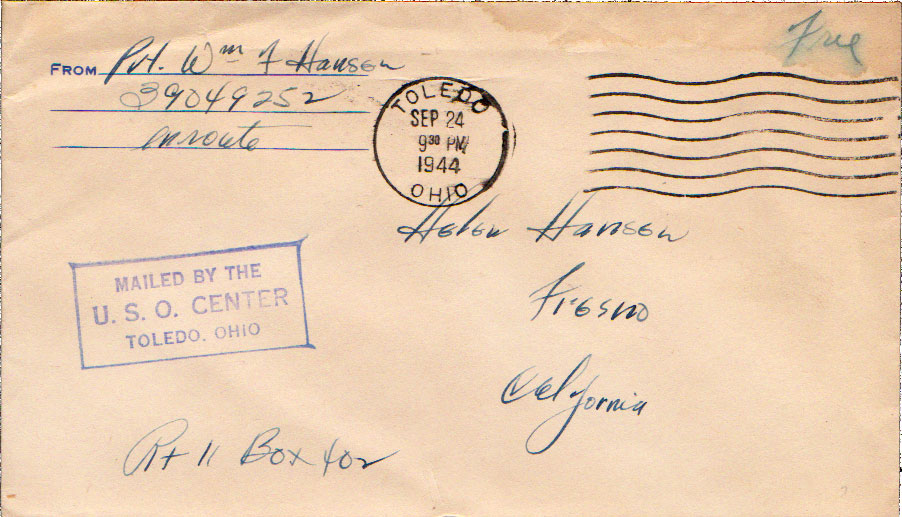 Free
FROM Pvt. Wm F Hansen
39049252
enroute
TOLEDO
SEP 24
9 30 PM
1944
OHIO
Helen Hansen
Fresno
California
MAILED BY THE
U. S. O. CENTER
TOLEDO. OHIO
Rt 11 Box 402